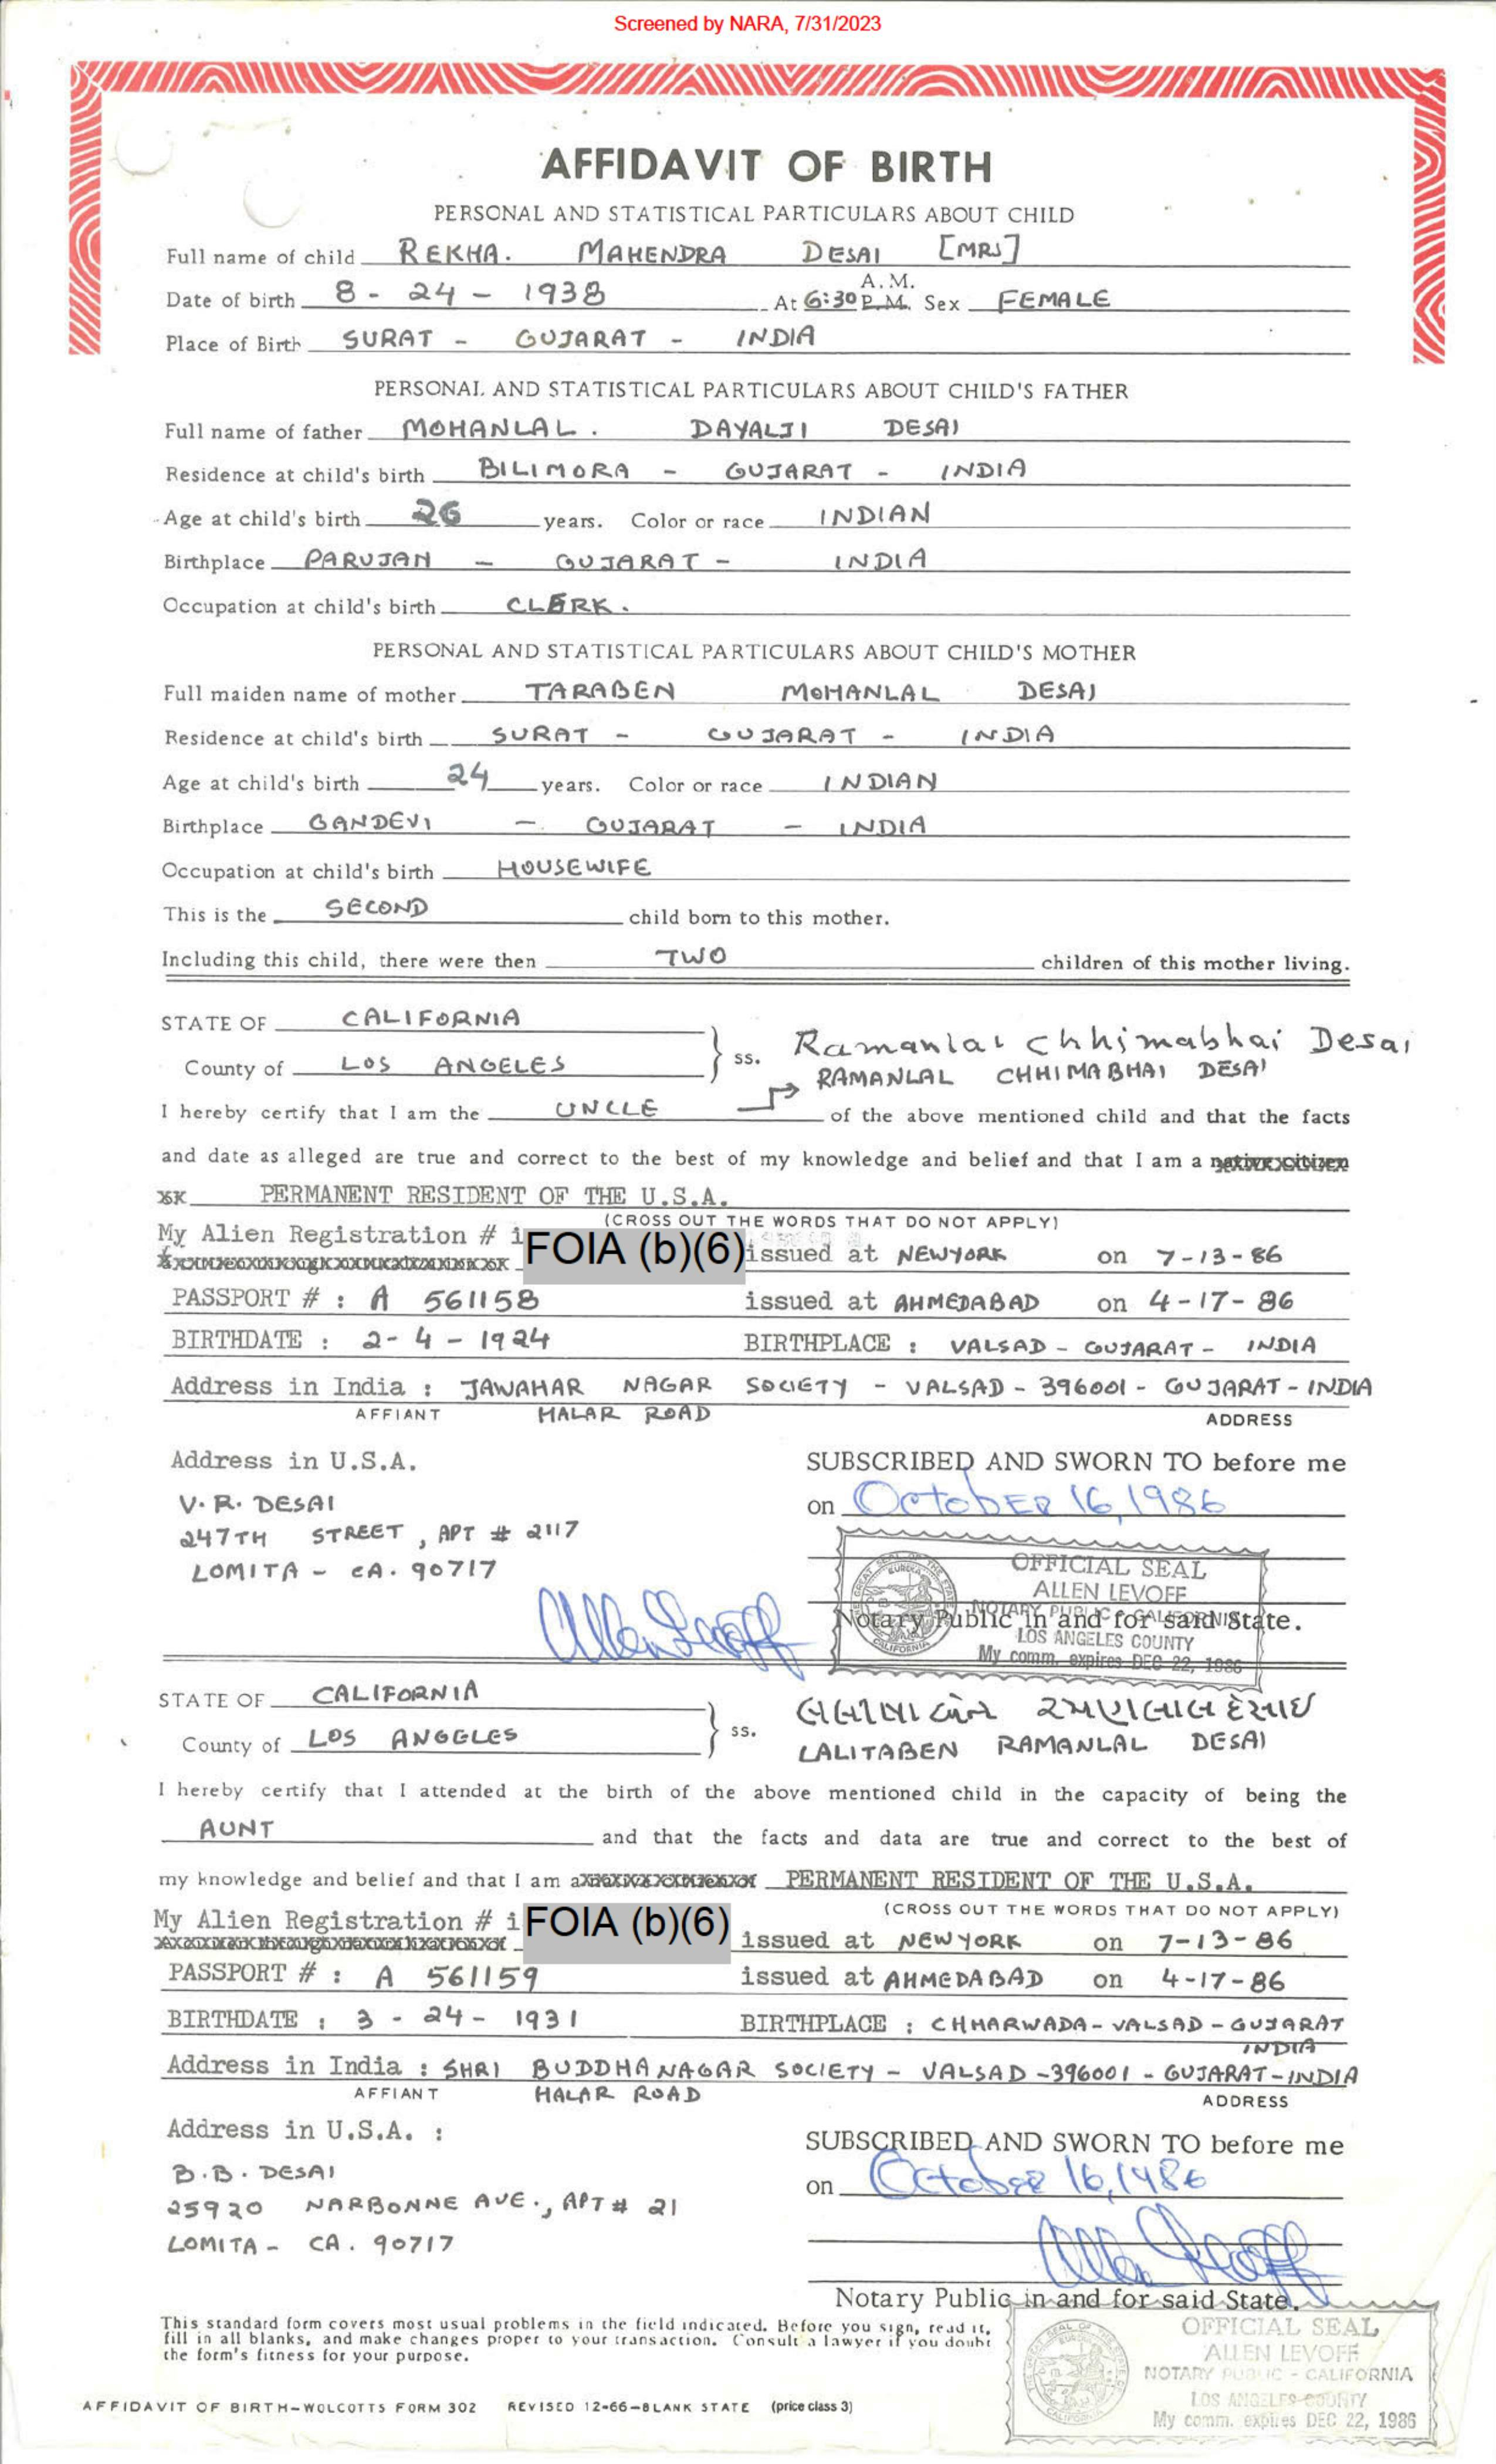 Screened by NARA, 7/31/2023
AFFIDAVIT OF BIRTH
PERSONAL AND STATISTICAL PARTICULARS ABOUT CHILD
Full name of child REKHA. MAHENDRA DESAI [MRS]
Date of birth 8 - 24 - 1938 At 6:30 A.M. P.M. Sex FEMALE
Place of Birth SURAT - GUJARAT - INDIA
PERSONAL AND STATISTICAL PARTICULARS ABOUT CHILD'S FATHER
Full name of father MOHANLAL. DAYALJI DESAI
Residence at child's birth BILIMORA - GUJARAT - INDIA
Age at child's birth 26 years. Color or race INDIAN
Birthplace PARUJAN - GUJARAT - INDIA
Occupation at child's birth CLERK.
PERSONAL AND STATISTICAL PARTICULARS ABOUT CHILD'S MOTHER
Full maiden name of mother TARABEN MOHANLAL DESAI
Residence at child's birth SURAT - GUJARAT - INDIA
Age at child's birth 24 years. Color or race INDIAN
Birthplace GANDEVI - GUJARAT - INDIA
Occupation at child's birth HOUSEWIFE
This is the SECOND child born to this mother.
Including this child, there were then TWO children of this mother living.
STATE OF CALIFORNIA
County of LOS ANGELES ss.
Ramanlal Chhimabhai Desai
RAMANLAL CHHIMABHAI DESAI
I hereby certify that I am the UNCLE of the above mentioned child and that the facts
and date as alleged are true and correct to the best of my knowledge and belief and that I am a native citizen
PERMANENT RESIDENT OF THE U.S.A.
(CROSS OUT THE WORDS THAT DO NOT APPLY)
My Alien Registration # i FOIA (b)(6) issued at NEWYORK on 7-13-86
PASSPORT # : A 561158 issued at AHMEDABAD on 4-17-86
BIRTHDATE : 2-4-1924 BIRTHPLACE : VALSAD - GUJARAT - INDIA
Address in India : JAWAHAR NAGAR SOCIETY - VALSAD - 396001 - GUJARAT - INDIA
AFFIANT HALAR ROAD ADDRESS
Address in U.S.A. SUBSCRIBED AND SWORN TO before me
V. R. DESAI on October 16, 1986
247TH STREET, APT # 2117
LOMITA - CA. 90717
OFFICIAL SEAL
ALLEN LEVOFF
NOTARY PUBLIC - CALIFORNIA
Notary Public in and for said State.
LOS ANGELES COUNTY
My comm. expires DEC 22, 1986
STATE OF CALIFORNIA
County of LOS ANGELES ss.
LALITABEN RAMANLAL DESAI
I hereby certify that I attended at the birth of the above mentioned child in the capacity of being the
AUNT and that the facts and data are true and correct to the best of
my knowledge and belief and that I am a PERMANENT RESIDENT OF THE U.S.A.
(CROSS OUT THE WORDS THAT DO NOT APPLY)
My Alien Registration # i FOIA (b)(6) issued at NEWYORK on 7-13-86
PASSPORT # : A 561159 issued at AHMEDABAD on 4-17-86
BIRTHDATE : 3 - 24 - 1931 BIRTHPLACE : CHHARWADA - VALSAD - GUJARAT
INDIA
Address in India : SHRI BUDDHANAGAR SOCIETY - VALSAD - 396001 - GUJARAT - INDIA
AFFIANT HALAR ROAD ADDRESS
Address in U.S.A. : SUBSCRIBED AND SWORN TO before me
B.B. DESAI on October 16, 1986
25920 NARBONNE AVE., APT # 21
LOMITA - CA. 90717
Notary Public in and for said State.
This standard form covers most usual problems in the field indicated. Before you sign, read it,
fill in all blanks, and make changes proper to your transaction. Consult a lawyer if you doubt
the form's fitness for your purpose.
OFFICIAL SEAL
ALLEN LEVOFF
NOTARY PUBLIC - CALIFORNIA
LOS ANGELES COUNTY
My comm. expires DEC 22, 1986
AFFIDAVIT OF BIRTH—WOLCOTTS FORM 302 REVISED 12-66—BLANK STATE (price class 3)